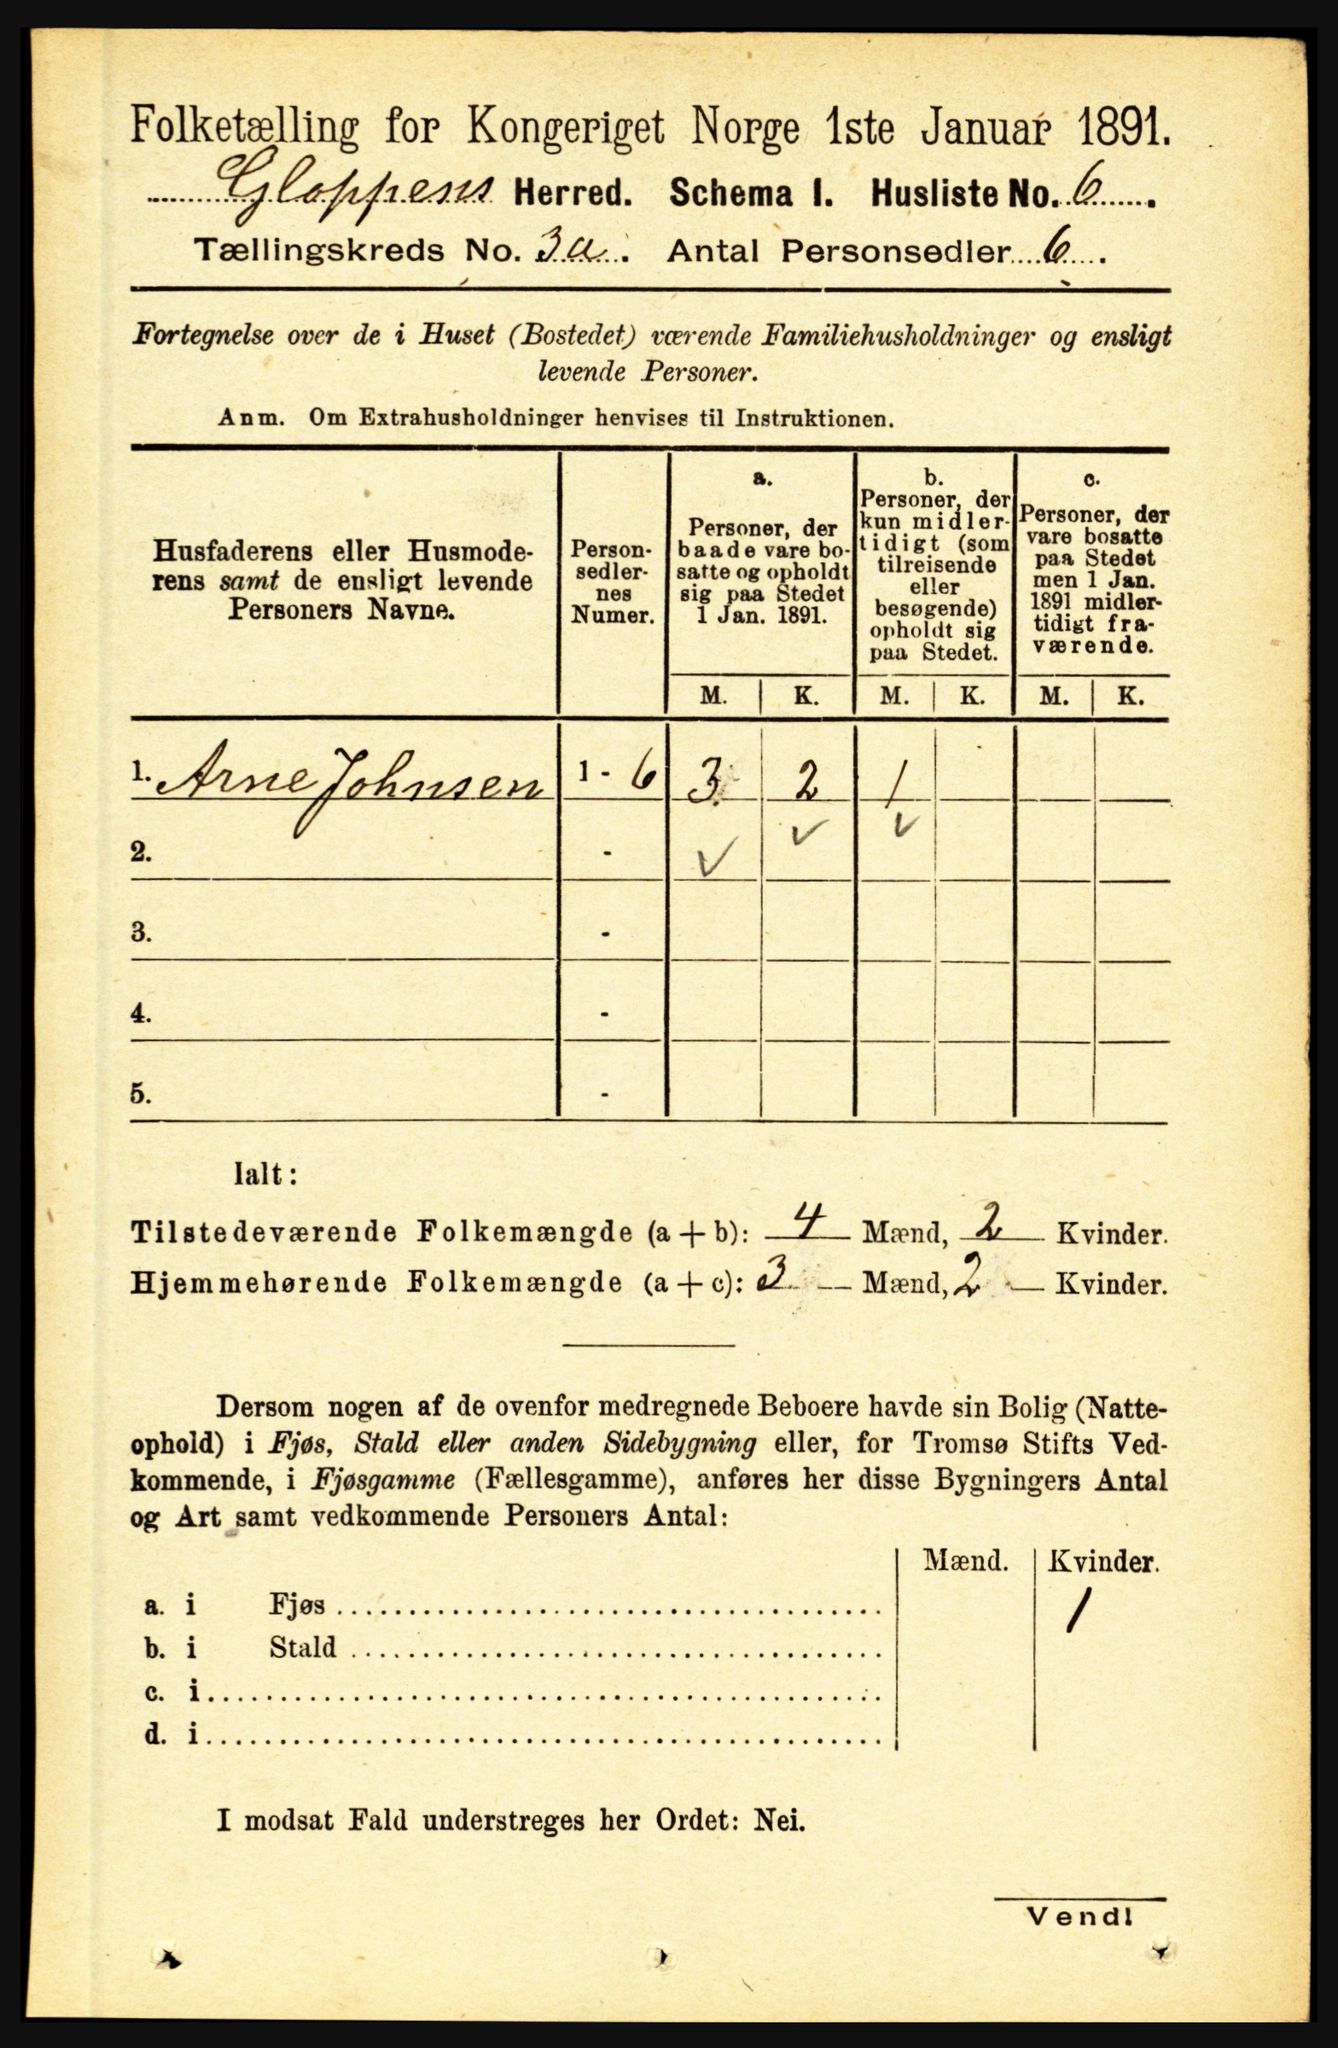 Folketælling for Kongeriget Norge 1ste Januar 1891.
Gloppens Herred. Schema I. Husliste No. 6.
Tællingskreds No. 3a. Antal Personsedler 6.
Fortegnelse over de i Huset (Bostedet) værende Familiehusholdninger og ensligt
levende Personer.
Anm. Om Extrahusholdninger henvises til Instruktionen.
Husfaderens eller Husmode-
rens samt de ensligt levende
Personers Navne.
Person-
sedler-
nes
Numer.
a.
Personer, der
baade vare bo-
satte og opholdt
sig paa Stedet
1 Jan. 1891.
b.
Personer, der
kun midler-
tidigt (som
tilreisende
eller
besøgende)
opholdt sig
paa Stedet.
c.
Personer, der
vare bosatte
paa Stedet
men 1 Jan.
1891 midler-
tidigt fra-
værende.
M. K. M. K. M. K.
1. Arne Johnsen 1 - 6 3 2 1
2. -
3. -
4. -
5. -
Ialt:
Tilstedeværende Folkemængde (a + b): 4 Mænd, 2 Kvinder.
Hjemmehørende Folkemængde (a + c): 3 Mænd, 2 Kvinder.
Dersom nogen af de ovenfor medregnede Beboere havde sin Bolig (Natte-
ophold) i Fjøs, Stald eller anden Sidebygning eller, for Tromsø Stifts Ved-
kommende, i Fjøsgamme (Fællesgamme), anføres her disse Bygningers Antal
og Art samt vedkommende Personers Antal:
Mænd. Kvinder.
a. i Fjøs 1
b. i Stald
c. i
d. i
I modsat Fald understreges her Ordet: Nei.
Vend!